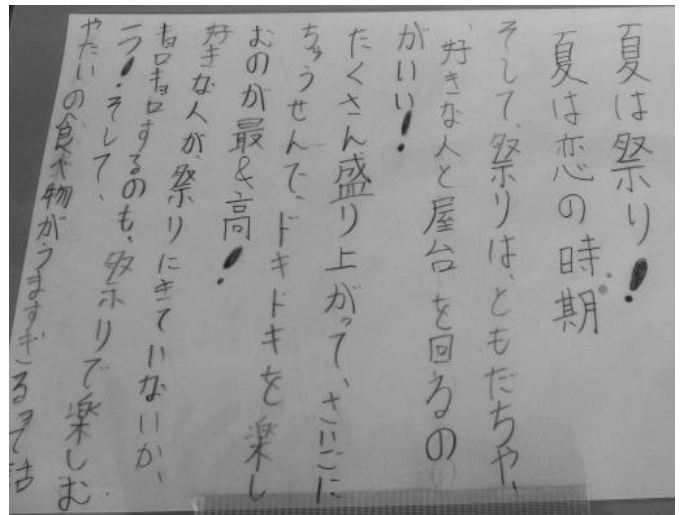 夏は祭り!
夏は恋の時期
そして、祭りは、ともだちや、
好きな人と屋台を回るの
がいい!
たくさん盛り上がって、さいごに
ちゅうせんで、ドキドキを楽し
むのが最&高!
好きな人が、祭りにきていないか、
キョロキョロするのも、祭りで楽しむ
ニラ!そして、
やたいの食べ物がうますぎるって話